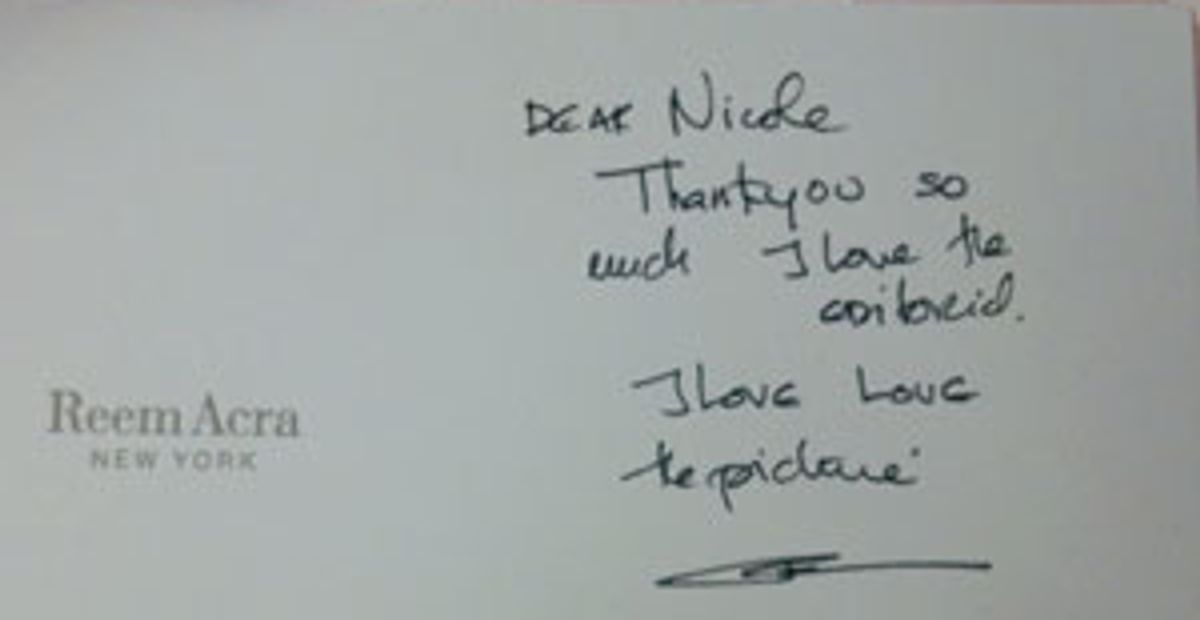 DEAR Nicole
Thankyou so
much I love the
I Love Love
the picture
Reem Acra
NEW YORK